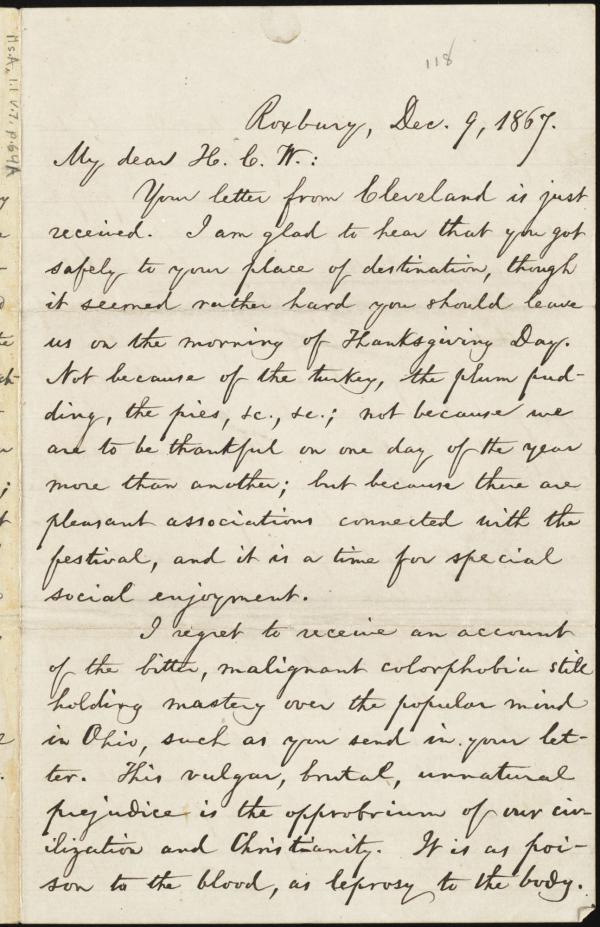 118
Ms.A.1.1 V.7, p.64A
Roxbury, Dec. 9, 1867.
My dear H. C. W.:
Your letter from Cleveland is just
received. I am glad to hear that you got
safely to your place of destination, though
it seemed rather hard you should leave
us on the morning of Thanksgiving Day.
Not because of the turkey, the plum pud-
ding, the pies, &c., &c.; not because we
are to be thankful on one day of the year
more than another; but because there are
pleasant associations connected with the
festival, and it is a time for special
social enjoyment.
I regret to receive an account
of the bitter, malignant colorphobia still
holding mastery over the popular mind
in Ohio, such as you send in your let-
ter. This vulgar, brutal, unnatural
prejudice is the opprobrium of our civ-
ilization and Christianity. It is as poi-
son to the blood, as leprosy to the body.